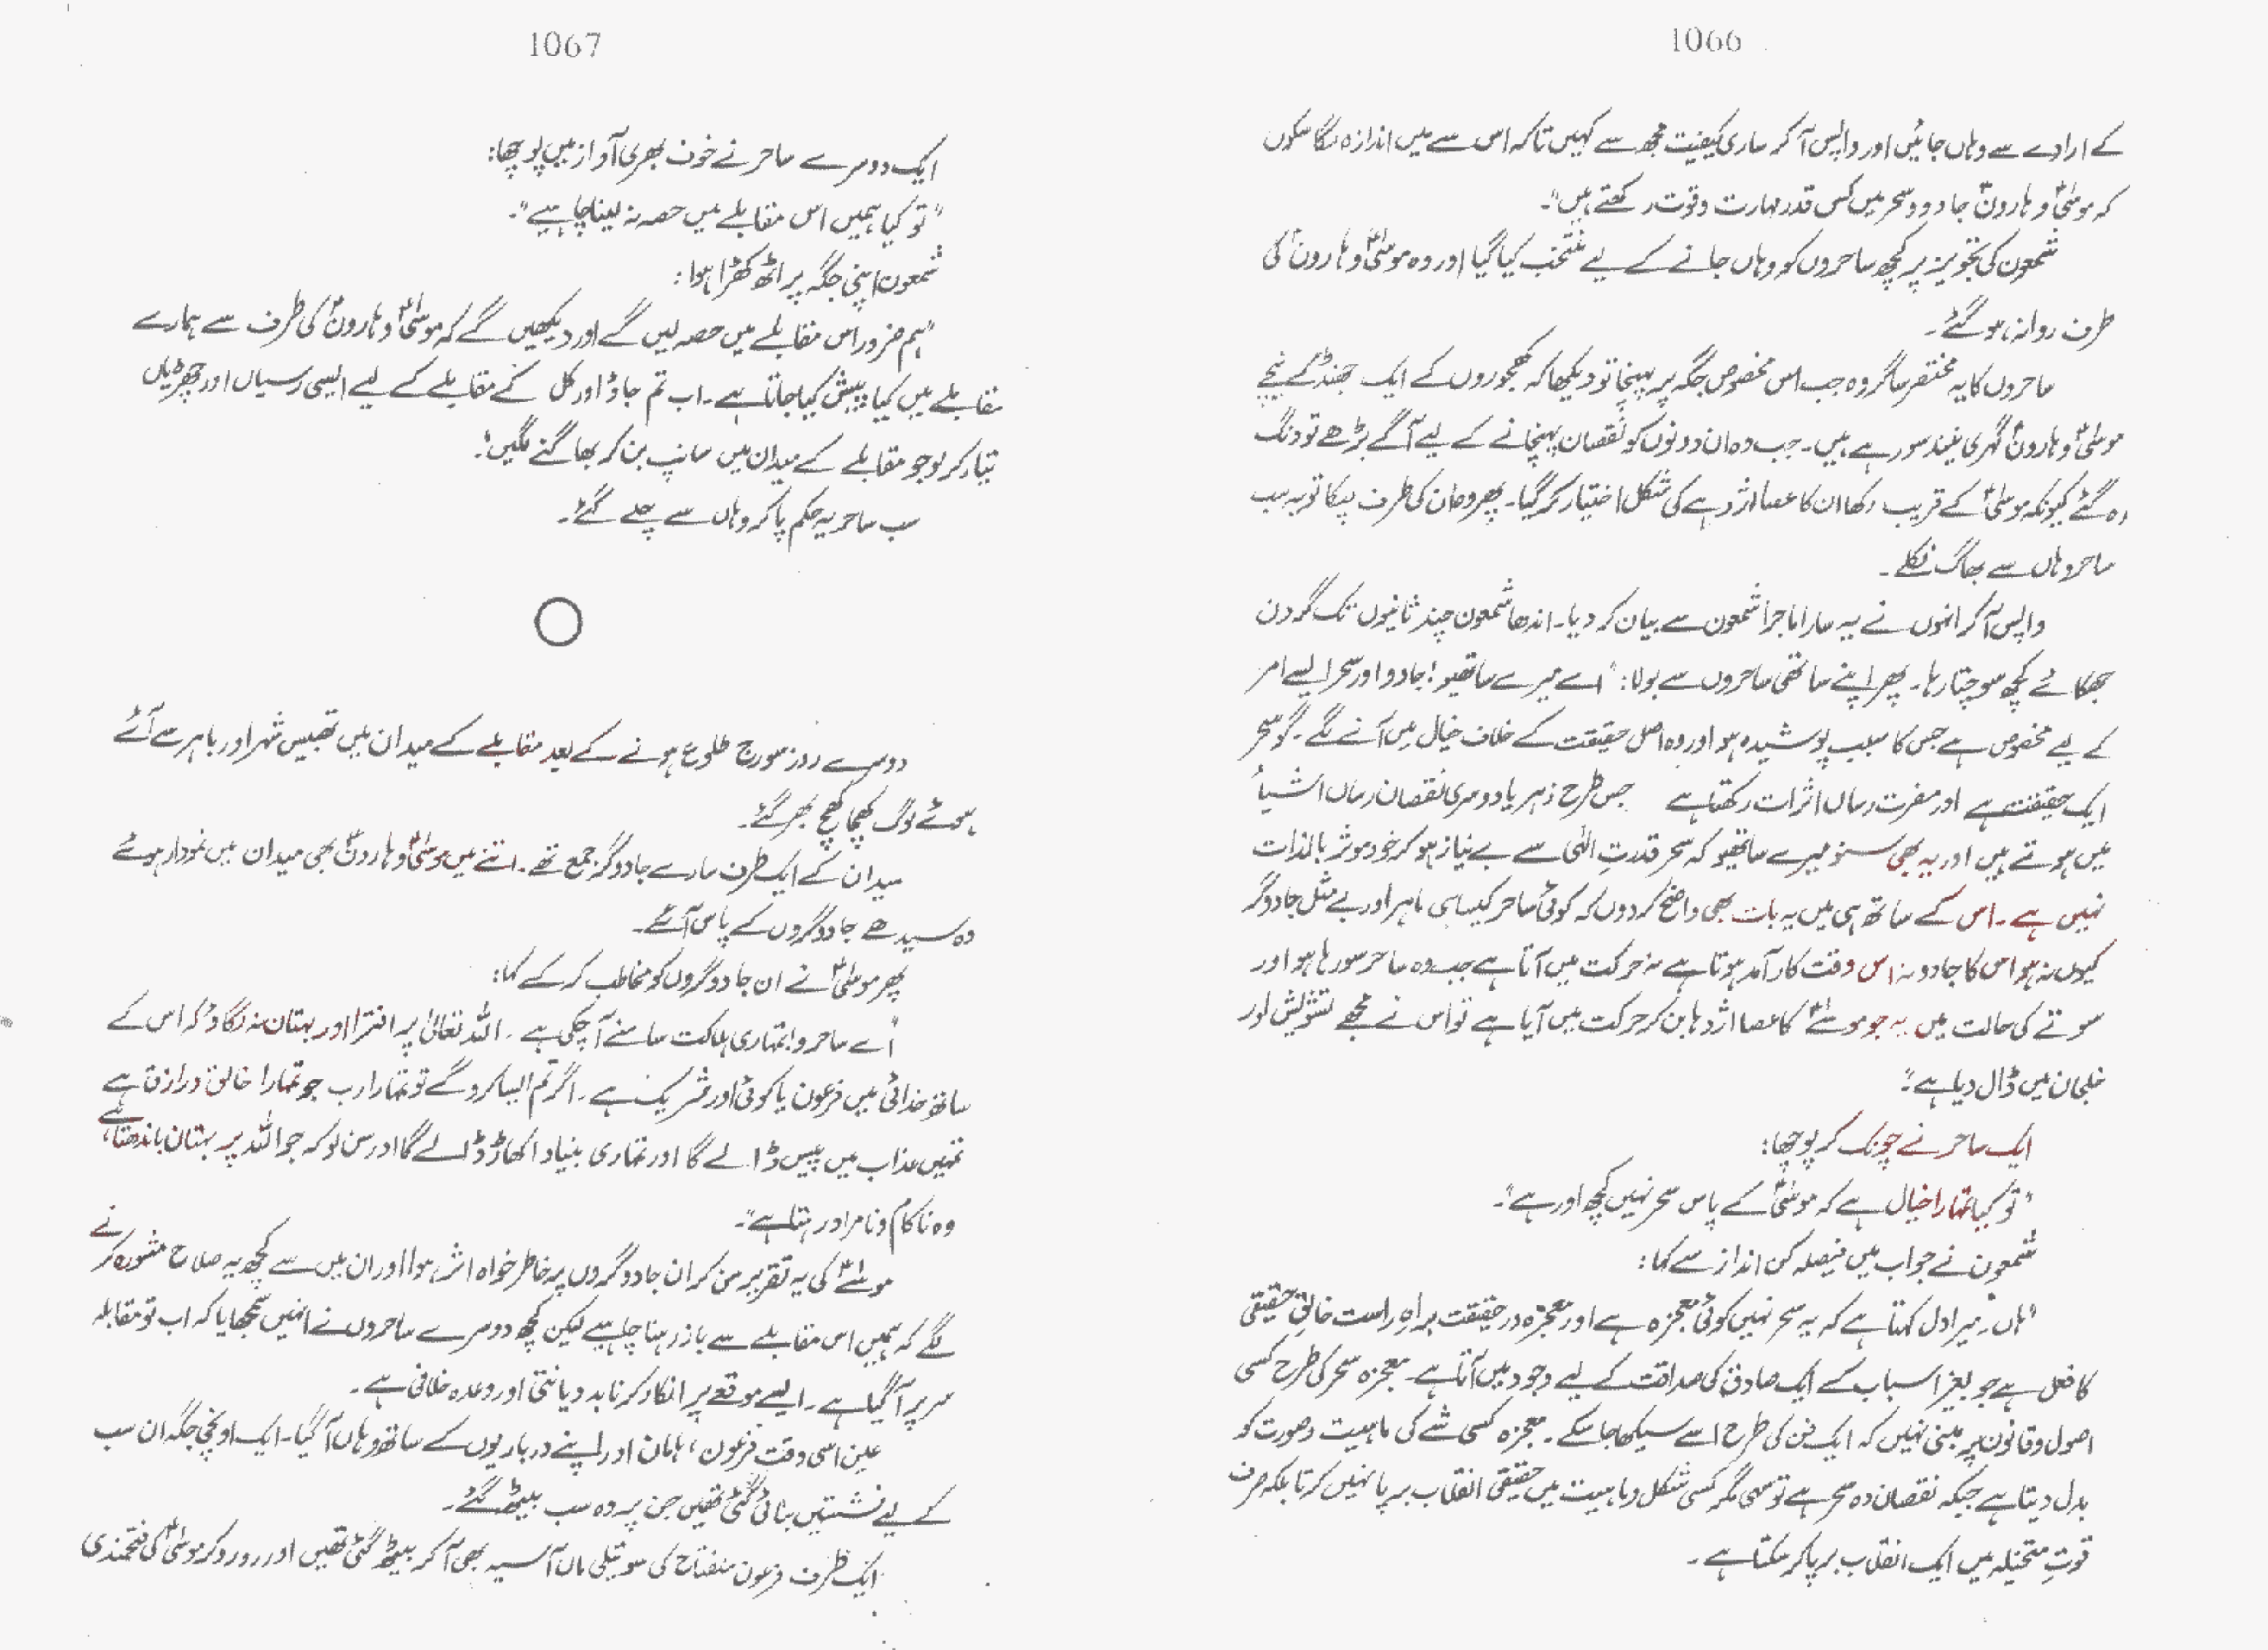 1066
کے ارادے سے وہاں جائیں اور واپس آ کر ساری کیفیت مجھ سے کہیں تاکہ اس سے میں اندازہ لگا سکوں
کہ موسیٰؑ و ہارونؑ جادو و سحر میں کس قدر مہارت و قوت رکھتے ہیں"۔
شمعون کی تجویز پر کچھ ساحروں کو وہاں جانے کے لیے منتخب کیا گیا اور وہ موسیٰؑ و ہارونؑ کی
طرف روانہ ہو گئے۔
ساحروں کا یہ مختصر سا گروہ جب اس مخصوص جگہ پر پہنچا تو دیکھا کہ کھجوروں کے ایک جھنڈ کے نیچے
موسیٰؑ و ہارونؑ گہری نیند سو رہے ہیں۔ جب وہ ان دونوں کو نقصان پہنچانے کے لیے آگے بڑھے تو دنگ
رہ گئے کیونکہ موسیٰؑ کے قریب رکھا ان کا عصا اژدہے کی شکل اختیار کر گیا۔ پھر وہ ان کی طرف لپکا تو یہ سب
ساحر وہاں سے بھاگ نکلے۔
واپس آ کر انہوں نے یہ سارا ماجرا شمعون سے بیان کر دیا۔ اندھا شمعون چند ثانیوں تک گردن
جھکائے کچھ سوچتا رہا۔ پھر اپنے ساتھی ساحروں سے بولا: "اے میرے ساتھیو! جادو اور سحر ایسے امر
کے لیے مخصوص ہے جس کا سبب پوشیدہ ہو اور وہ اصل حقیقت کے خلاف خیال میں آنے لگے۔ گو سحر
ایک حقیقت ہے اور مضرت رساں اثرات رکھتا ہے جس طرح زہر یا دوسری نقصان رساں اشیاء
میں ہوتے ہیں اور یہ بھی سنو میرے ساتھیو کہ سحر قدرتِ الٰہی سے بے نیاز ہو کر خود موثر بالذات
نہیں ہے۔ اس کے ساتھ ہی میں یہ بات بھی واضح کر دوں کہ کوئی ساحر کیسا ہی ماہر اور بے مثل جادوگر
کیوں نہ ہو اس کا جادو نہ اس وقت کارآمد ہوتا ہے نہ حرکت میں آتا ہے جب وہ ساحر سو رہا ہو اور
سوتے کی حالت میں یہ جو موسیٰؑ کا عصا اژدہا بن کر حرکت میں آیا ہے تو اس نے مجھے تشویش اور
خلجان میں ڈال دیا ہے"۔
ایک ساحر نے چونک کر پوچھا:
"تو کیا تمہارا خیال ہے کہ موسیٰؑ کے پاس سحر نہیں کچھ اور ہے"۔
شمعون نے جواب میں فیصلہ کن انداز سے کہا:
"ہاں۔ میرا دل کہتا ہے کہ یہ سحر نہیں کوئی معجزہ ہے اور معجزہ در حقیقت براہِ راست خالقِ حقیقی
کا فعل ہے جو بغیر اسباب کے ایک صادق کی صداقت کے لیے وجود میں آتا ہے۔ معجزہ سحر کی طرح کسی
اصول و قانون پر مبنی نہیں کہ ایک فن کی طرح اسے سیکھا جا سکے۔ معجزہ کسی شے کی ماہیت و صورت کو
بدل دیتا ہے جبکہ نقصان دہ سحر ہے تو سہی مگر کسی شکل و ماہیت میں حقیقی انقلاب برپا نہیں کرتا بلکہ صرف
قوتِ متخیلہ میں ایک انقلاب برپا کر سکتا ہے۔
1067
ایک دوسرے ساحر نے خوف بھری آواز میں پوچھا:
"تو کیا ہمیں اس مقابلے میں حصہ نہ لینا چاہیے"۔
شمعون اپنی جگہ پر اٹھ کھڑا ہوا:
"ہم ضرور اس مقابلے میں حصہ لیں گے اور دیکھیں گے کہ موسیٰؑ و ہارونؑ کی طرف سے ہمارے
مقابلے میں کیا پیش کیا جاتا ہے۔ اب تم جاؤ اور کل کے مقابلے کے لیے ایسی رسیاں اور چھڑیاں
تیار کر لو جو مقابلے کے میدان میں سانپ بن کر بھاگنے لگیں"۔
سب ساحر یہ حکم پا کر وہاں سے چلے گئے۔
دوسرے روز سورج طلوع ہونے کے بعد مقابلے کے میدان میں تھیبس شہر اور باہر سے آئے
ہوئے لوگ کھچا کھچ بھر گئے۔
میدان کے ایک طرف سارے جادوگر جمع تھے۔ اتنے میں موسیٰؑ و ہارونؑ بھی میدان میں نمودار ہوئے
وہ سیدھے جادوگروں کے پاس آئے۔
پھر موسیٰؑ نے ان جادوگروں کو مخاطب کر کے کہا:
"اے ساحرو! تمہاری ہلاکت سامنے آ چکی ہے۔ اللہ تعالیٰ پر افترا اور بہتان نہ لگاؤ کہ اس کے
ساتھ خدائی میں فرعون یا کوئی اور شریک ہے۔ اگر تم ایسا کرو گے تو تمہارا رب جو تمہارا خالق و رازق ہے
تمہیں عذاب میں پیس ڈالے گا اور تمہاری بنیاد اکھاڑ ڈالے گا اور سن لو کہ جو اللہ پر بہتان باندھتا ہے
وہ ناکام و نامراد رہتا ہے"۔
موسیٰؑ کی یہ تقریر سن کر ان جادوگروں پر خاطر خواہ اثر ہوا اور ان میں سے کچھ یہ صلاح مشورہ کرنے
لگے کہ ہمیں اس مقابلے سے باز رہنا چاہیے لیکن کچھ دوسرے ساحروں نے انہیں سمجھایا کہ اب تو مقابلہ
سر پر آ گیا ہے۔ ایسے موقعے پر انکار کرنا بد دیانتی اور وعدہ خلافی ہے۔
عین اسی وقت فرعون، ہامان اور اپنے درباریوں کے ساتھ وہاں آ گیا۔ ایک اونچی جگہ ان سب
کے لیے نشستیں بنائی گئی تھیں جن پر وہ سب بیٹھ گئے۔
ایک طرف فرعون منفتاح کی سوتیلی ماں آسیہ بھی آ کر بیٹھ گئی تھیں اور رو رو کر موسیٰؑ کی فتحمندی